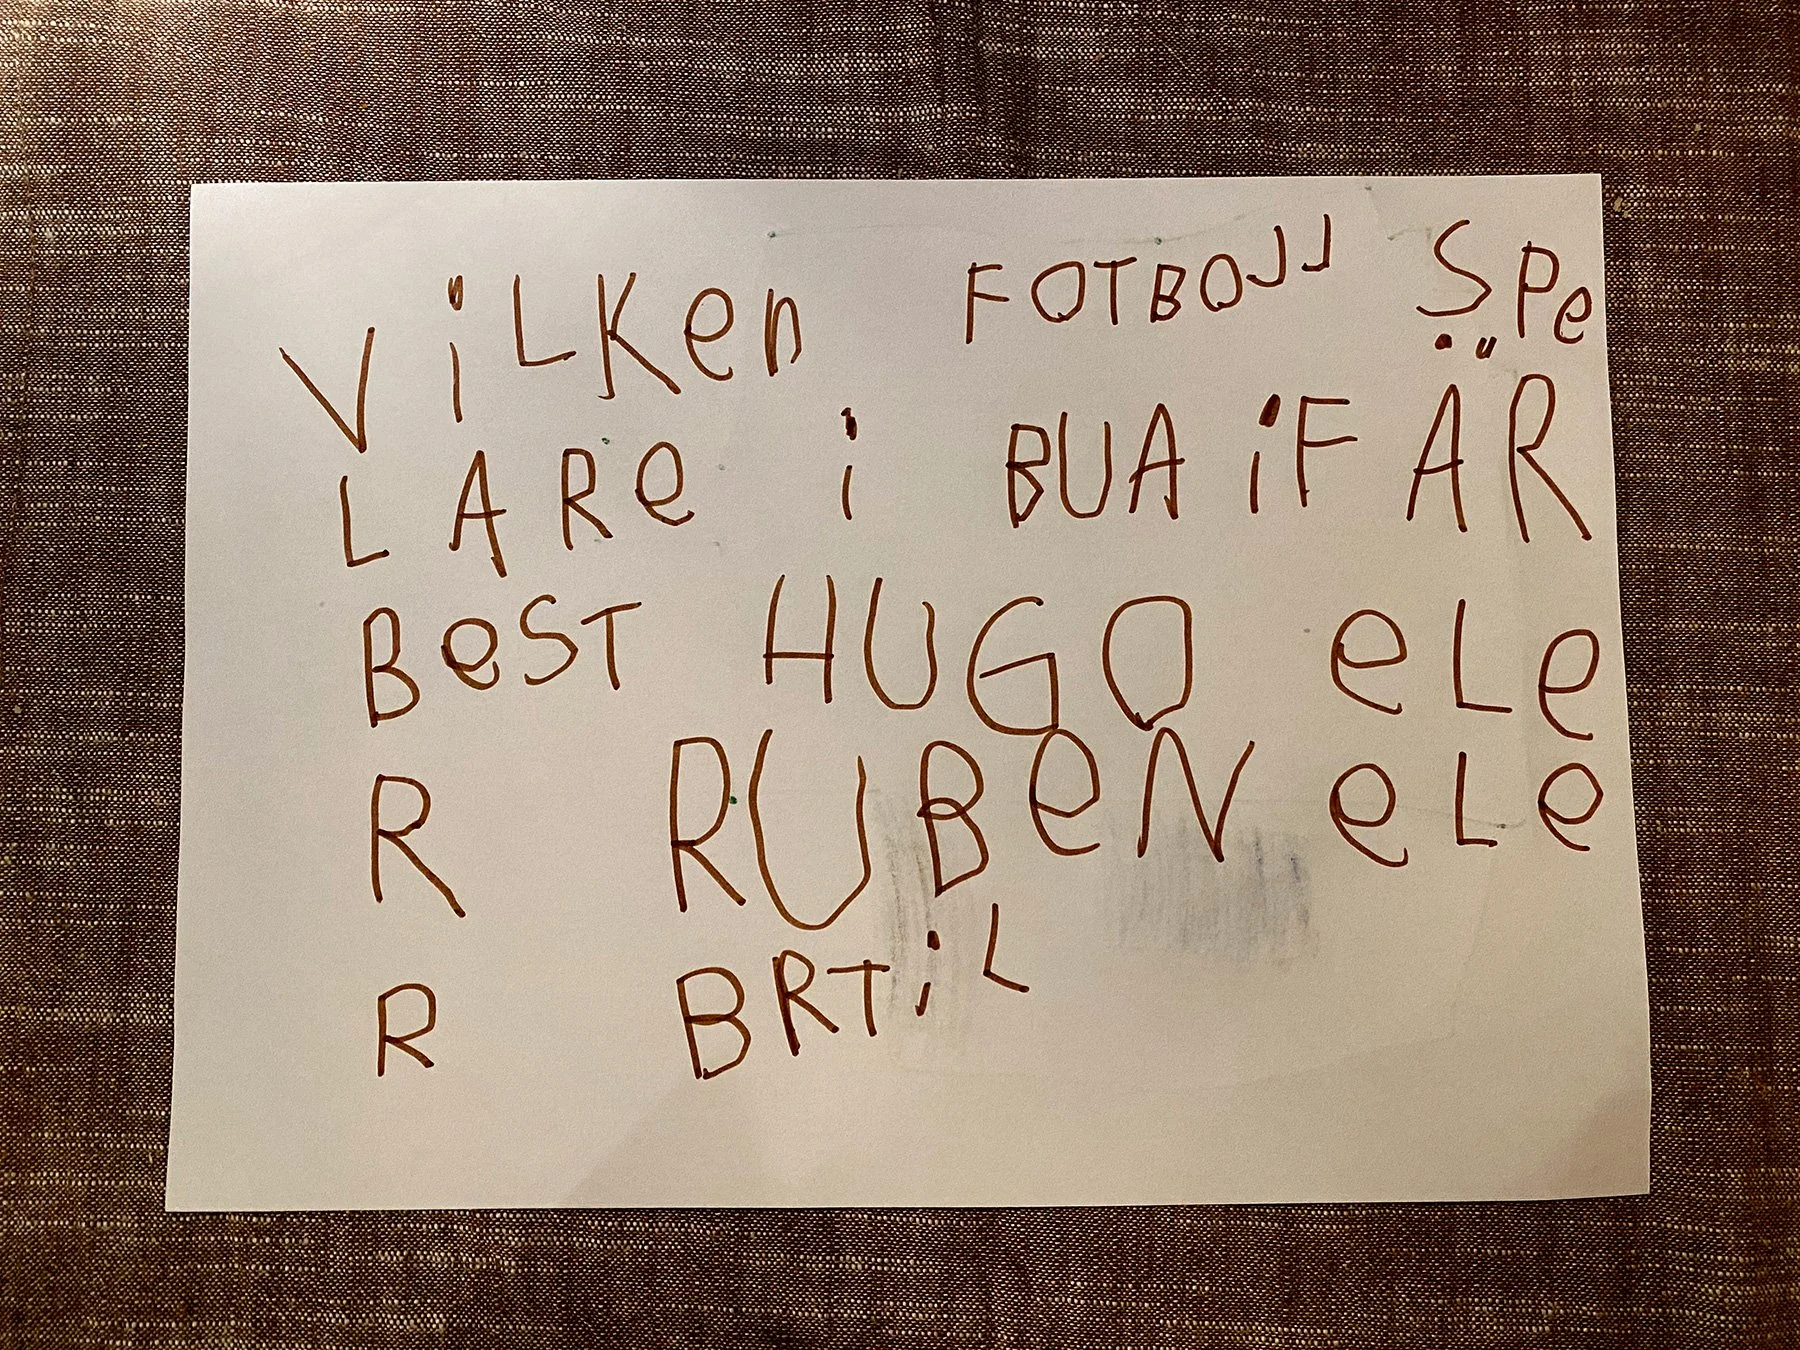 ViLKen FOTBOJJ SPe
LARe i BUA iF ÄR
BeST HUGO eLe
R RUBeN eLe
R BRTiL